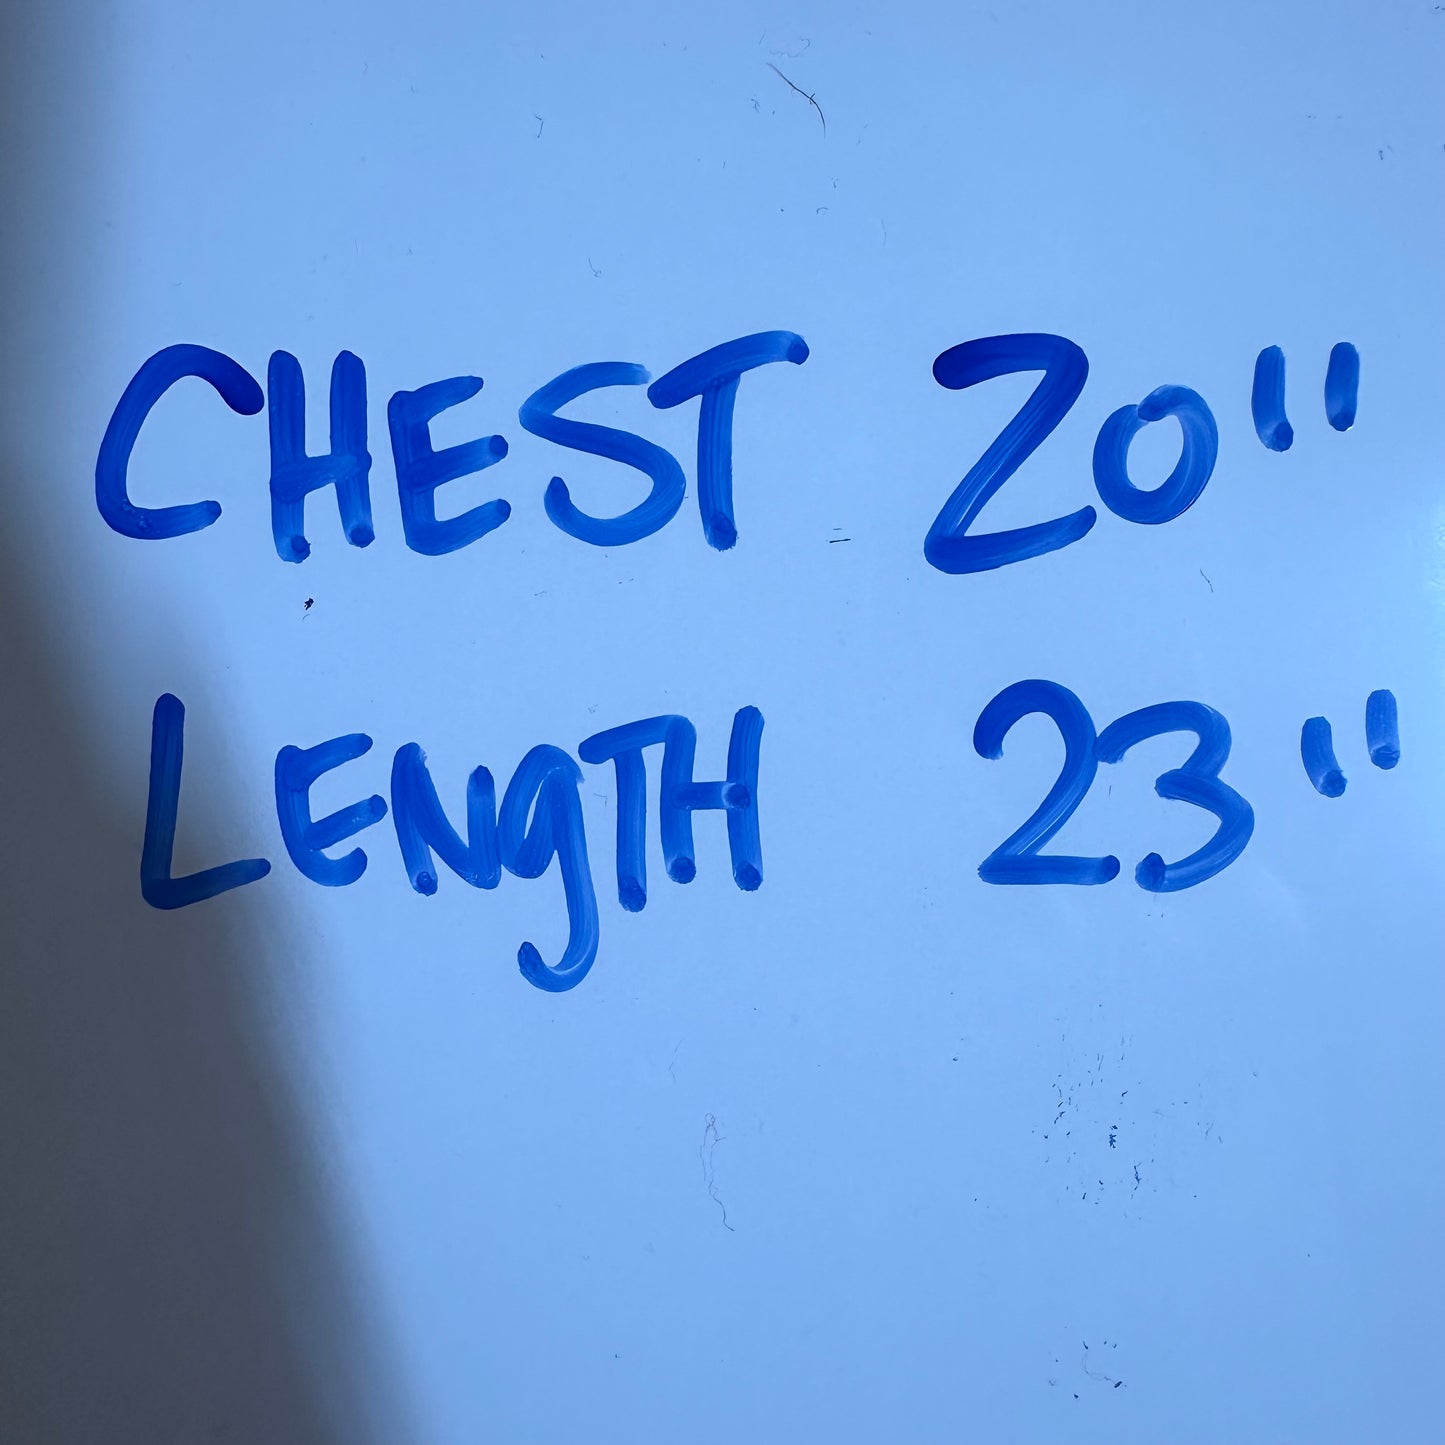 CHEST 20"
LENgTH 23"